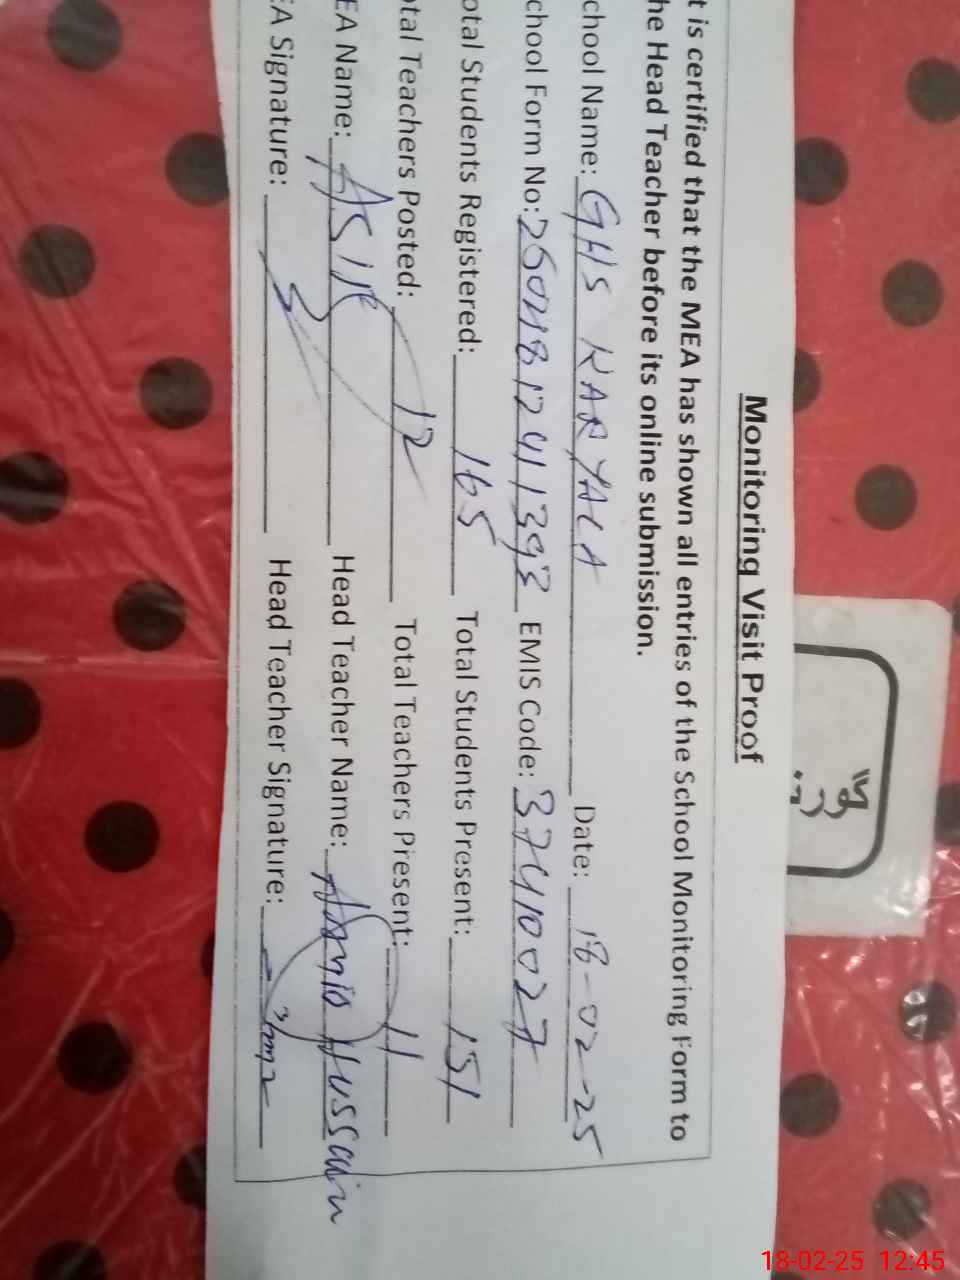 Monitoring Visit Proof
t is certified that the MEA has shown all entries of the School Monitoring Form to
he Head Teacher before its online submission.
chool Name: GHS KARYALA Date: 18-02-25
chool Form No: EMIS Code: 37410027
otal Students Registered: 165 Total Students Present: 151
otal Teachers Posted: 12 Total Teachers Present: 11
EA Name: ASIF Head Teacher Name: Hussain
EA Signature: Head Teacher Signature:
18-02-25 12:45